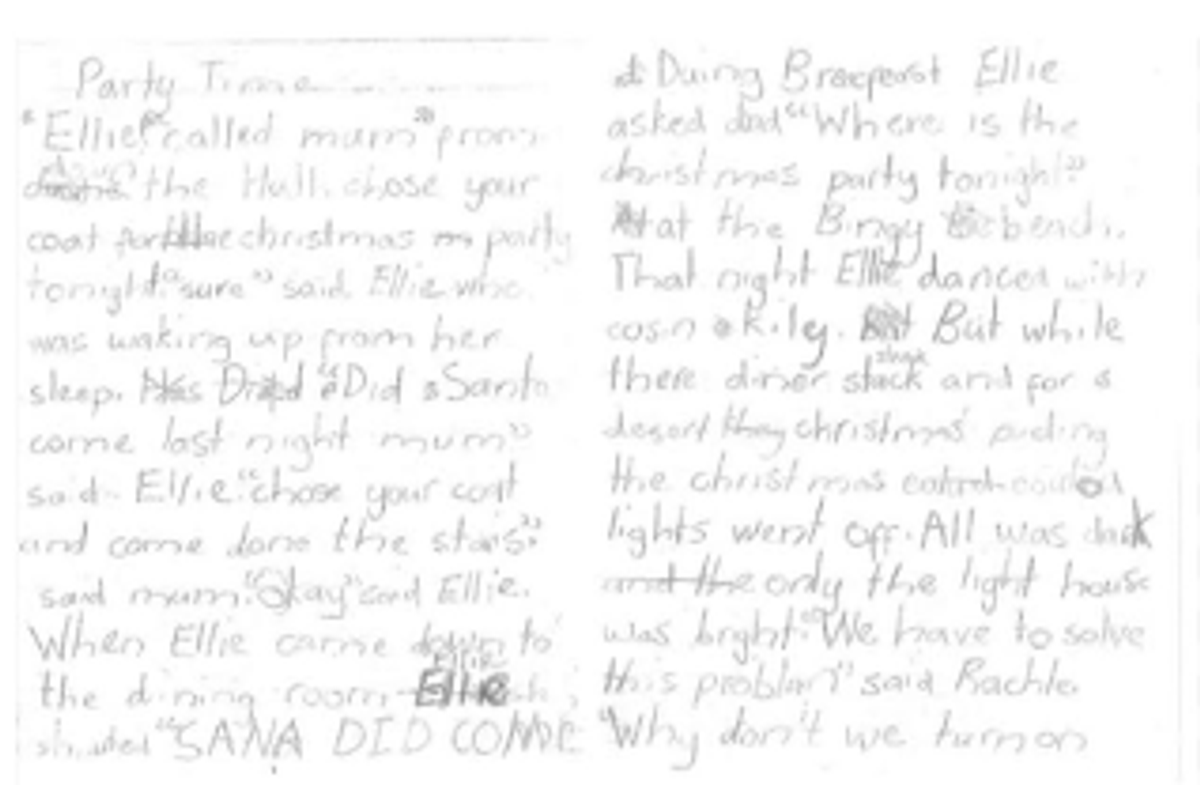 Party Time
"Ellie!" called mum" prom
the Hall. chose your
coat for the christmas party
tonight. "sure" said Ellie who
was waking up prom her
sleep. "Did Santa
come last night mum"
said Ellie. "chose your coat
and come done the stairs"
said mum. "Okay" said Ellie.
When Ellie came down to
the dining room Ellie
shouted "SANA DID COME
Duing Bracpeast Ellie
asked dad "Where is the
christmas party tonight"
at the Bingy beach.
That night Ellie danced with
cosin Kiley. But while
there diner stuck and for
desert they christmas puding
the christmas
lights went opp. All was dark
only the light house
was bright. "We have to solve
this problam" said Rachle.
"Why don't we turn on